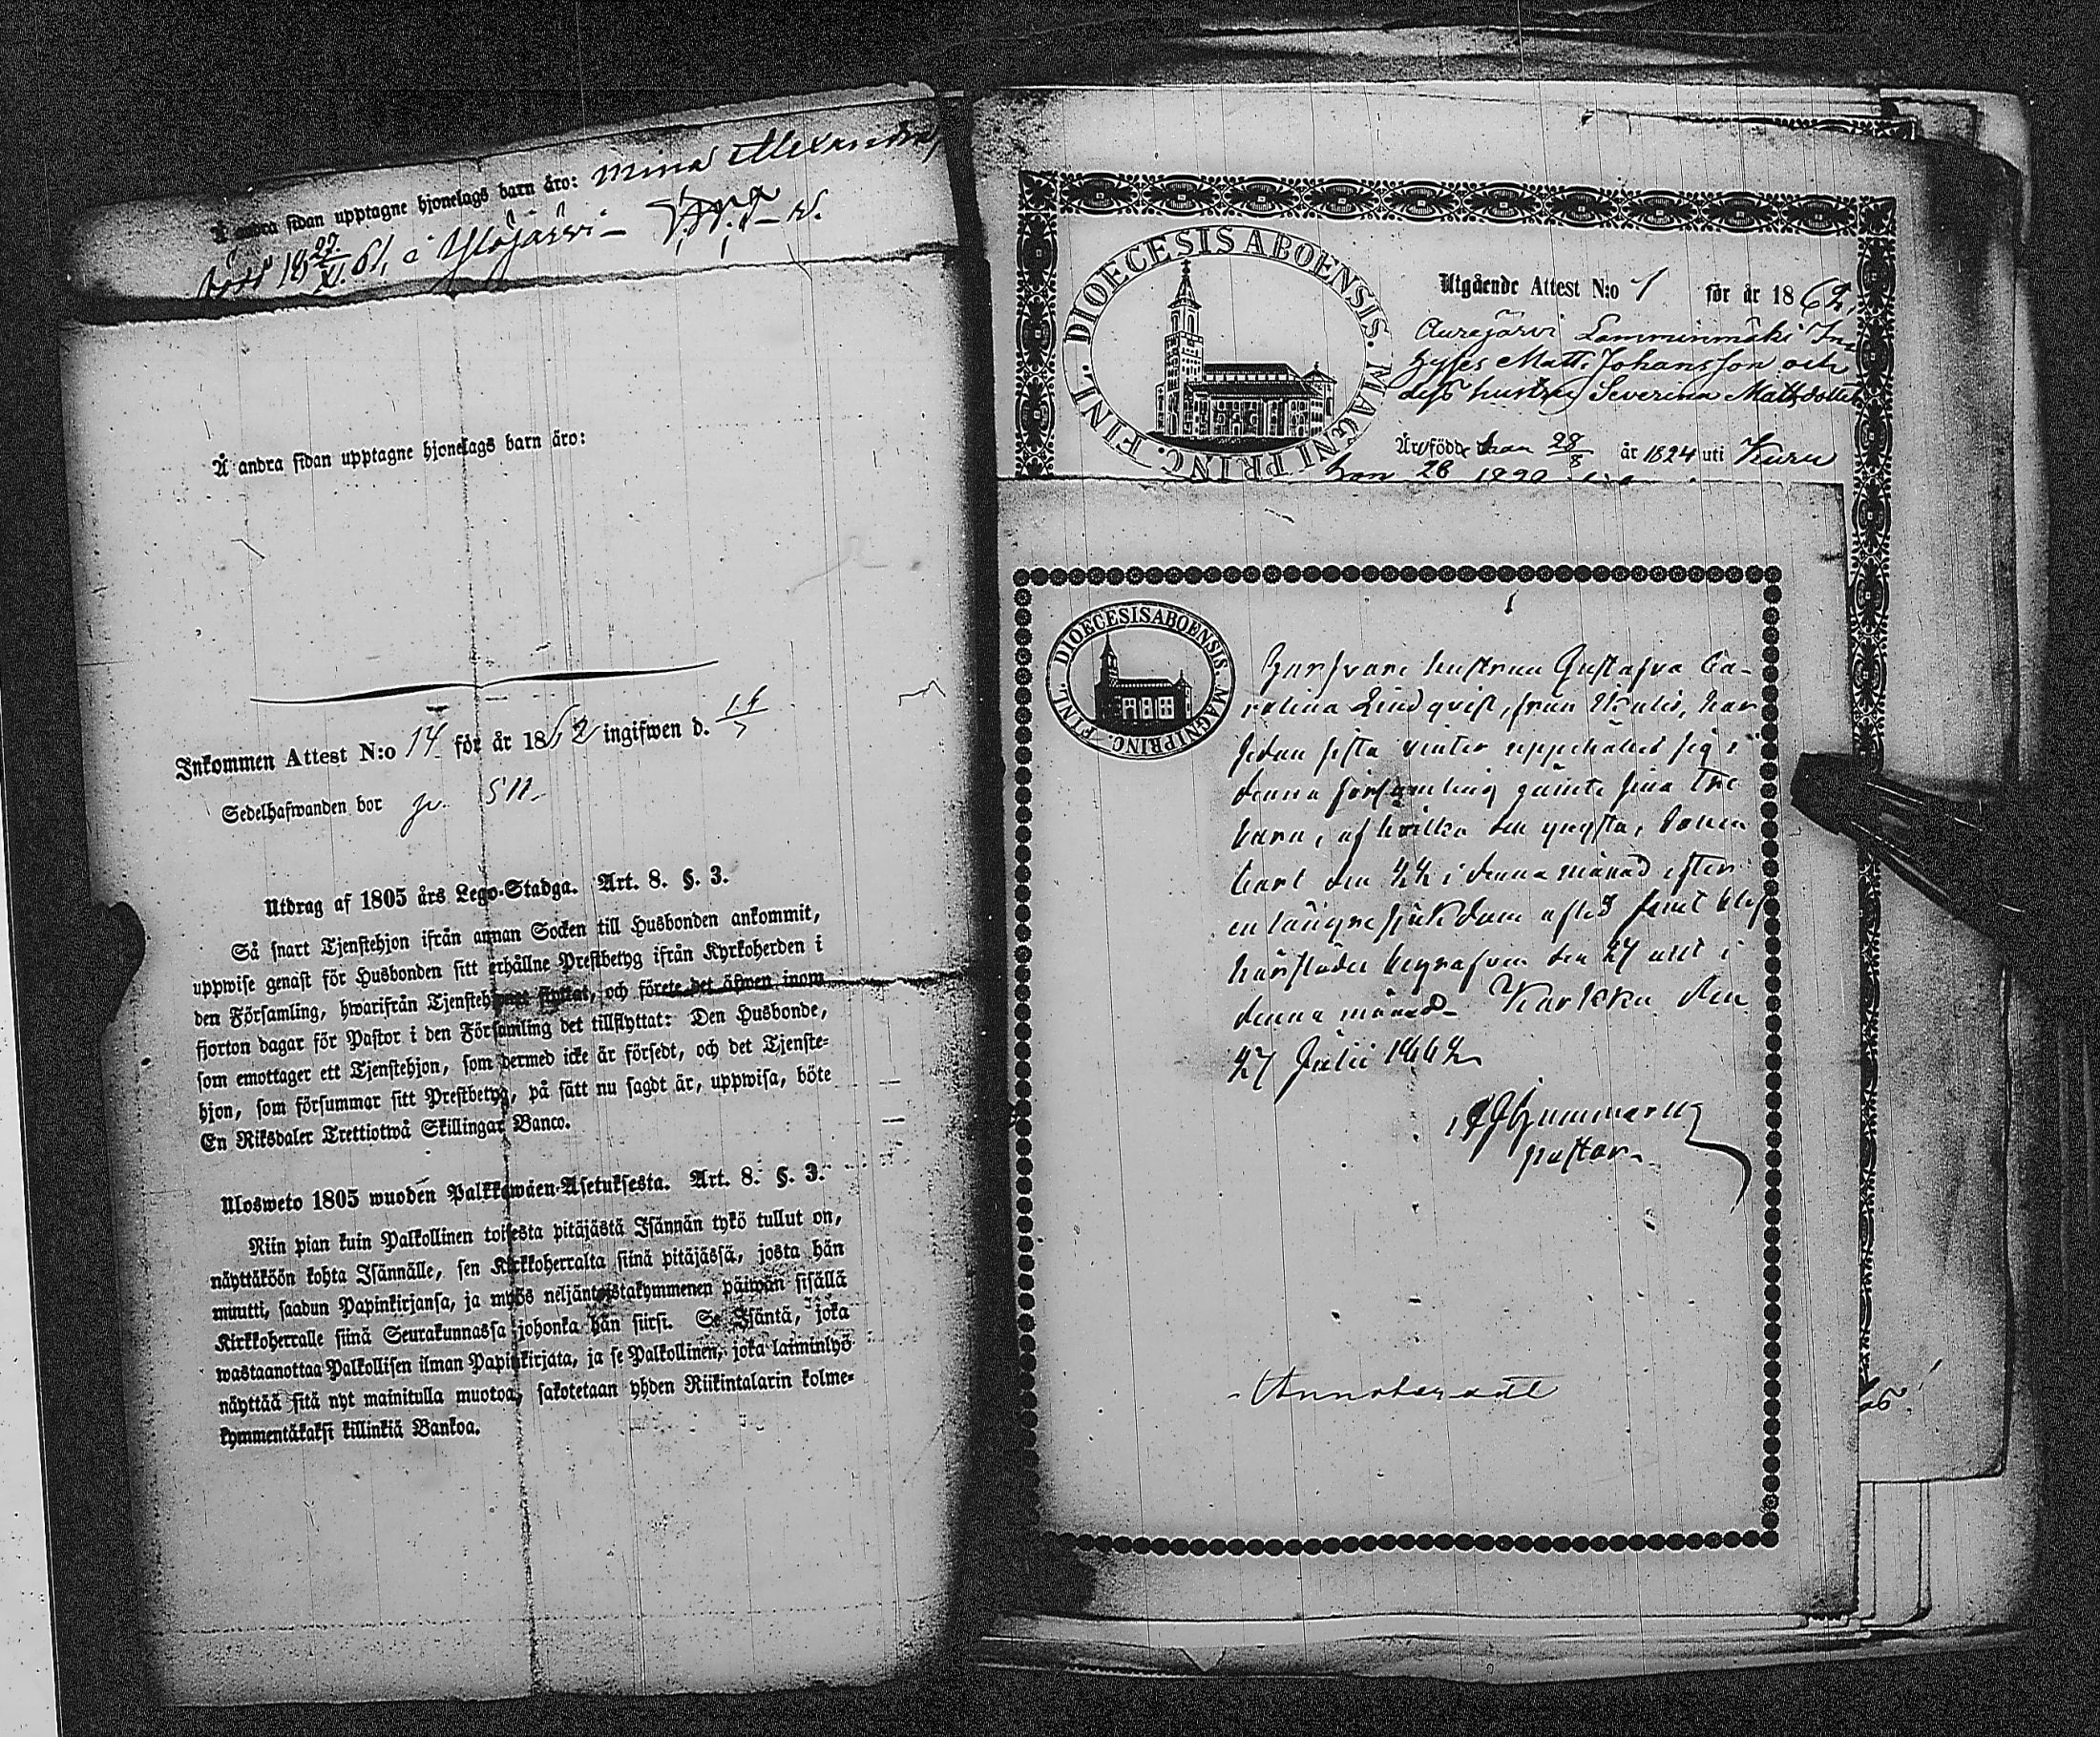 Å andra sidan upptagne hjonelags barn äro: Mina Alexandra,
född 18 27/XI. 61, i Ylöjärvi –
Å andra sidan upptagne hjonelags barn äro:
Inkommen Attest N:o 14 för år 1862 ingifwen d.
Sedelhafwanden bor
Utdrag af 1805 års Lego-Stadga. Art. 8. §. 3.
Så snart Tjenstehjon ifrån annan Socken till Husbonden ankommit,
uppwise genast för Husbonden sitt erhållne Prestbetyg ifrån Kyrkoherden i
den Församling, hwarifrån Tjenstehjonet flyttat, och förete det äfwen inom
fjorton dagar för Pastor i den Församling det tillflyttat: Den Husbonde,
som emottager ett Tjenstehjon, som dermed icke är försedt, och det Tjenste-
hjon, som försummar sitt Prestbetyg, på sätt nu sagdt är, uppwisa, böte
En Riksdaler Trettiotwå Skillingar Banco.
Ulosweto 1805 wuoden Palkkawäen-Asetuksesta. Art. 8. §. 3.
Niin pian kuin Palkollinen toisesta pitäjästä Isännän tykö tullut on,
näyttäköön kohta Isännälle, sen Kirkkoherralta siinä pitäjässä, josta hän
muutti, saadun Papinkirjansa, ja myös neljäntoistakymmenen päiwän sisällä
Kirkkoherralle siinä Seurakunnassa johonka hän siirsi. Se Isäntä, joka
wastaanottaa Palkollisen ilman Papinkirjata, ja se Palkollinen, joka laiminlyö
näyttää sitä nyt mainitulla muotoa, sakotetaan yhden Riikintalarin kolme-
kymmentäkaksi killinkiä Bankoa.
DIOECESIS ABOENSIS. MAGNI PRINC. FINL.
Utgående Attest N:o 1 för år 1862,
Aurejärvi Lamminmäki In-
hyses Matts Johansson och
dess hustru Severina Mattsdotter
Är född han 28/8 år 1824 uti Kuru
DIOECESIS ABOENSIS. MAGNI PRINC. FINL.
Garfvare hustrun Gustafva Ca-
rolina Lindqvist, från Skulis, har
sedan sista vinter uppehållit sig i
denna församling jämte sina tre
barn, af hvilka den yngsta, sonen
Carl den 22 i denna månad efter
en längre sjukdom afled samt blef
härstädes begrafven den 27 uti
denna månad. Karkku den
27 Julii 1862
Pastor.